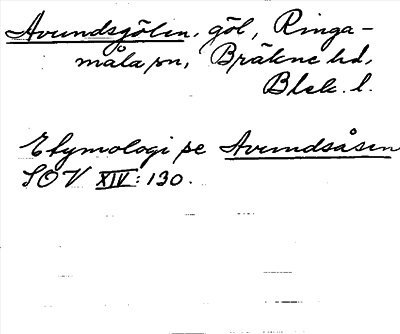 Avundsgölen, göl, Ringa-
måla sn, Bräkne hd,
Blek. l.
Etymologi se Avundsåsen
SOV XIV: 130.